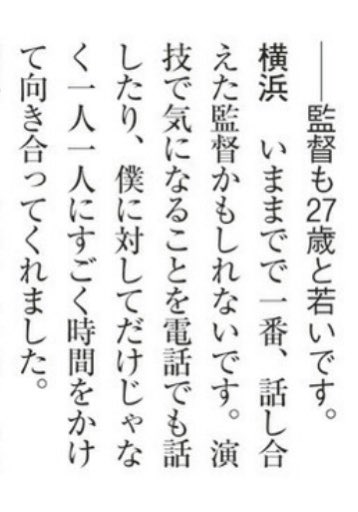 ――監督も27歳と若いです。
横浜　いままでで一番、話し合
えた監督かもしれないです。演
技で気になることを電話でも話
したり、僕に対してだけじゃな
く一人一人にすごく時間をかけ
て向き合ってくれました。